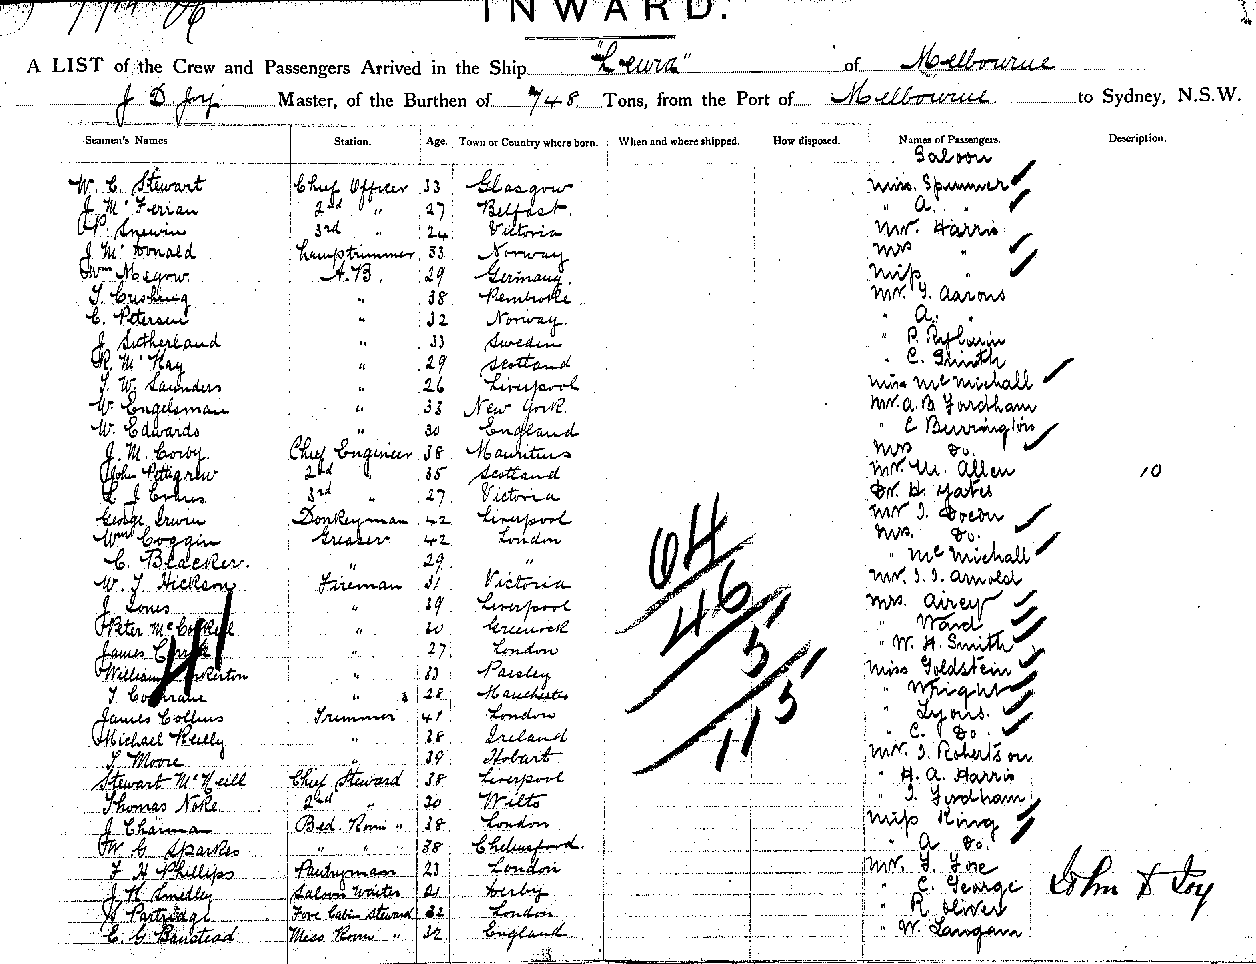 INWARD.
A LIST of the Crew and Passengers Arrived in the Ship "Leura" of Melbourne
J D Joy Master, of the Burthen of 748 Tons, from the Port of Melbourne to Sydney, N.S.W.
Seamen's Names Station. Age. Town or Country where born. When and where shipped. How disposed. Names of Passengers. Description.
Saloon
W. C. Stewart Chief Officer 33 Glasgow Miss. Spurrier
J Mc Ferran 2nd " 27 Belfast. " A. "
3rd " 24 Victoria Mr. Harris
J Mc Donald Lamptrimmer 33 Norway Mrs "
Wm Megow A.B. 29 Germany. Miss "
T. Cushing " 38 Pembroke Mr. J. Aarons
C. Petersen " 32 Norway. " A. "
J Sutherland " 33 Sweden "
R. Mc Kay " 29 Scotland " C. Smith
T. W. Saunders " 26 Liverpool Miss Mc Michall
W. Engelsman " 33 New York. Mr. A. B Fordham
W. Edwards " 30 England " C Burrington
J. M. Corby Chief Engineer 38 Mauritius Mrs Do.
John Pettigrew 2nd " 35 Scotland Mr. W. Allen 10
J Evans 3rd " 27 Victoria Dr. H. Yates
George Irwin Donkeyman 42 Liverpool Mr J.
Wm Coggin Greaser 42 London Mrs. Do.
C. Bleecker. " 29 " " Mc Michall
W. J. Hickson Fireman 31 Victoria Mr. J. J. Arnold
J Jones " 39 Liverpool Mrs. Airey
Peter Mc " 30 Greenock " Ward
James " 27 London " W. H. Smith
William " 33 Paisley Miss Goldstein
T Cochrane " 28 Manchester " Wright
James Collins Trimmer 41 London " Lyons.
Michael Reilly " 38 Ireland " C. Do.
T Moore " 39 Hobart Mr. J. Robertson
Stewart Mc Neill Chief Steward 38 Liverpool " H. A. Harris
Thomas Noke 2nd " 30 Wilts " J. Fordham
J Charman Bed Room " 38 London Miss King
W. G Sparkes " " 38 Chelmsford. " A Do.
F H Phillips Pantryman 23 London Mr. G. Foe
J. H Smedley Saloon Waiter 21 Derby " C. George
H Partridge Fore Cabin Steward 32 London " R Oliver
E G Banstead Mess Room " 32 England " W. Langan
41
64
46
5
115
John D Joy